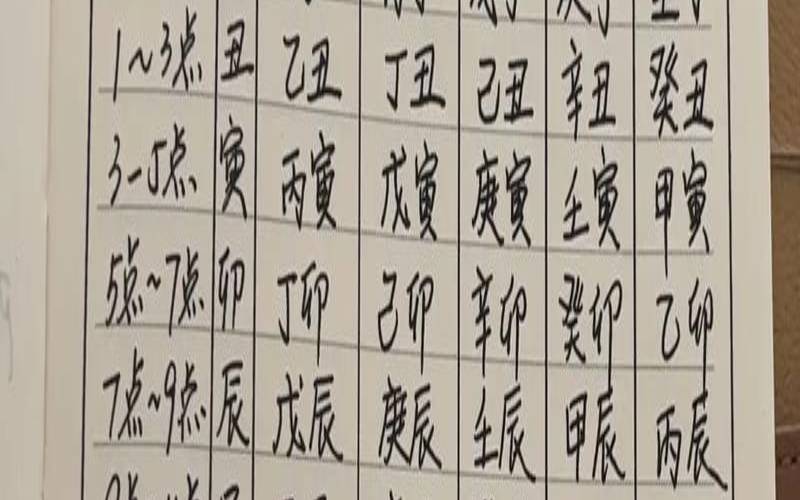 1~3点 丑 乙丑 丁丑 己丑 辛丑 癸丑
3-5点 寅 丙寅 戊寅 庚寅 壬寅 甲寅
5点~7点 卯 丁卯 己卯 辛卯 癸卯 乙卯
7点~9点 辰 戊辰 庚辰 壬辰 甲辰 丙辰